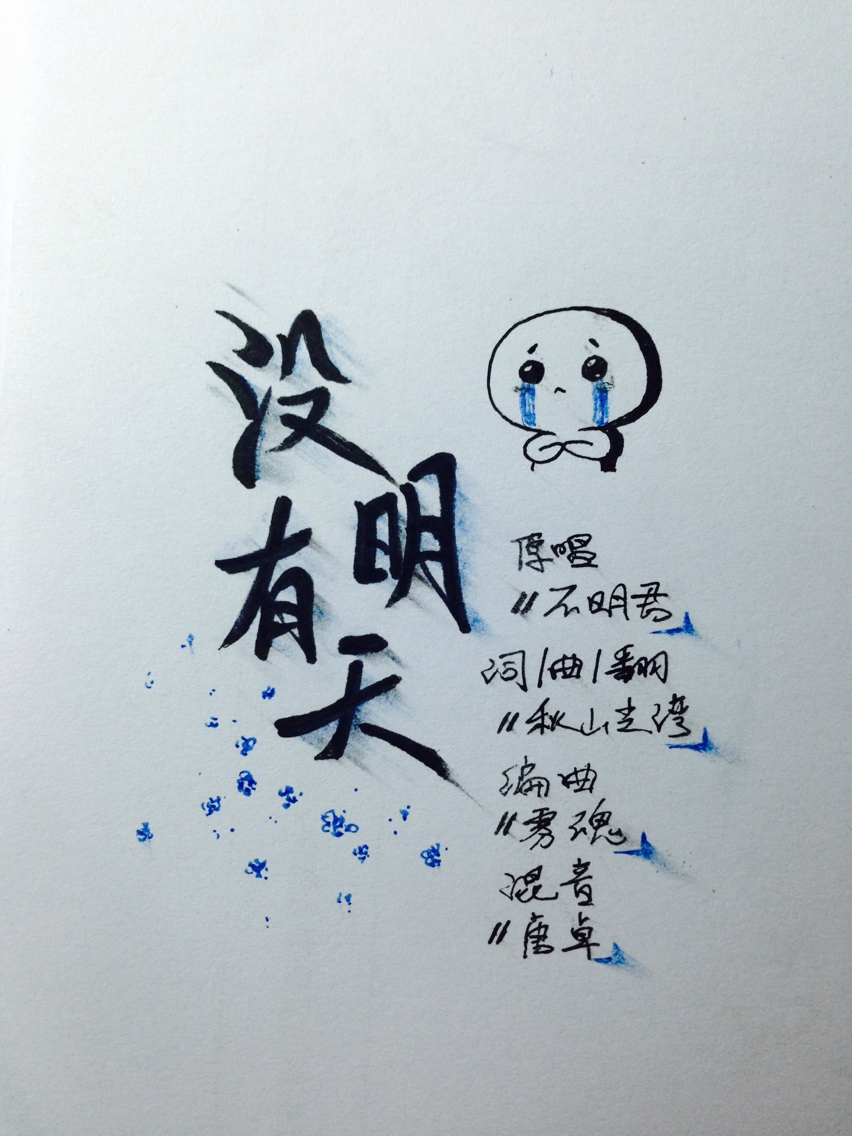 没有
明天
原唱
//不明君
词/曲/翻
//秋山湾
编曲
//雾魂
混音
//唐卓